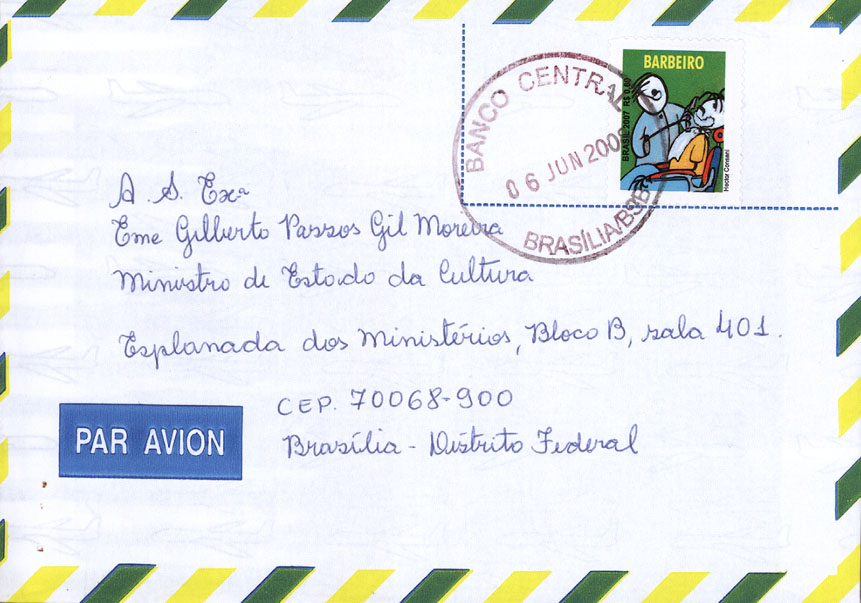 BARBEIRO
BRASIL 2007 R$ 0,60
Hector Consani
BANCO CENTRAL
06 JUN 200
BRASÍLIA/BSB
A S. Exª
Eme Gilberto Passos Gil Moreira
Ministro de Estado da Cultura
Esplanada dos Ministérios, Bloco B, sala 401.
CEP. 70068-900
Brasília - Distrito Federal
PAR AVION